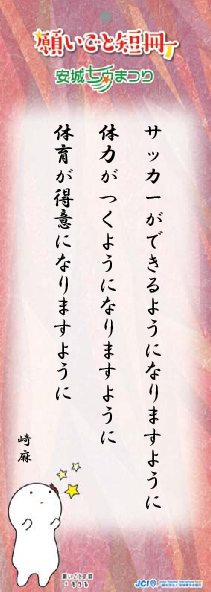 願いごと短冊
安城七夕まつり
サッカーができるようになりますように
体力がつくようになりますように
体育が得意になりますように
崎麻
願いごと短冊
JCI